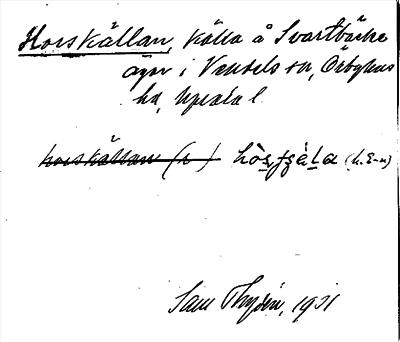 Horskällan, källa å Svartbäcks
ägor i Vendels sn, Örbyhus
hd, Uppsala l.
horskällan (r)
Sam Thyrén, 1931